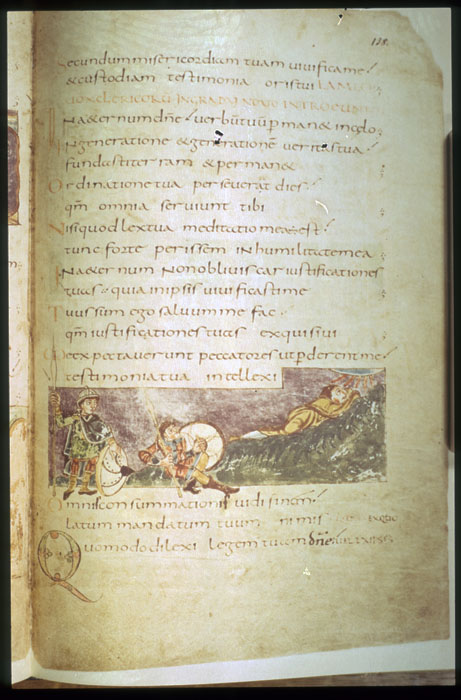 138.
Secundum misericordiam tuam vivificame
& custodiam testimonia oris tui LAM
IN
In& ernum dne verbu tuu pman& incelo
In generatione & generatione veritas tua
fundasti terram & perman&
Ordinatione tua perseverat dies
qm omnia serviunt tibi
Nisi quod lex tua meditatio mea est
tunc forte perissem in humilitate mea
In& ernum non obliviscar iustificationes
tuas quia in ipsis vivificasti me
Tuus sum ego salvum me fac
qm iustificationes tuas exquisivi
Me expectaverunt peccatores ut perderent me
testimonia tua intellexi
Omnis consummationis vidi finem
latum mandatum tuum nimis
Quomodo dilexi legem tuam dne